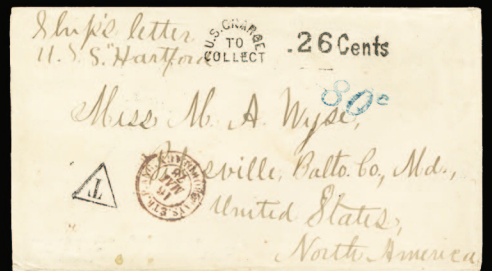 Ship's letter
U.S.S. "Hartford
U.S. CHARGE
TO
COLLECT
.26 Cents
80c
Miss M. A. Wyse,
Pikesville, Balto. Co., Md.,
T
United States,
North America